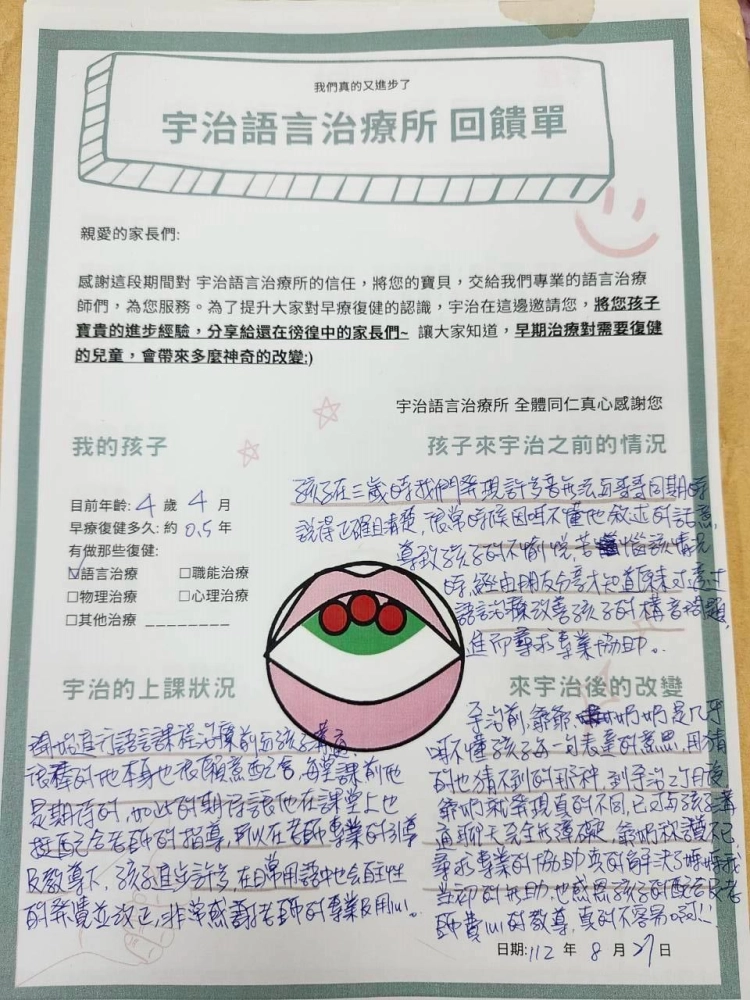 我們真的又進步了
宇治語言治療所 回饋單
親愛的家長們:
感謝這段期間對 宇治語言治療所的信任，將您的寶貝，交給我們專業的語言治療
師們，為您服務。為了提升大家對早療復健的認識，宇治在這邊邀請您，將您孩子
寶貴的進步經驗，分享給還在徬徨中的家長們~ 讓大家知道，早期治療對需要復健
的兒童，會帶來多麼神奇的改變:)
宇治語言治療所 全體同仁真心感謝您
我的孩子
目前年齡: 4 歲 4 月
早療復健多久: 約 0.5 年
有做那些復健:
☑語言治療 □職能治療
□物理治療 □心理治療
□其他治療 ________
孩子來宇治之前的情況
孩子在三歲時我們發現許多音無法与哥哥同期時
說得正確且清楚，很常時候因听不懂他敘述的話意，
導致孩子的不愉悅，苦惱該情況
時，經由朋友分享才知道原來可透過
語言治療改善孩子的構音問題，
進而尋求專業協助。
宇治的上課狀況
開始進行語言課程治療前与孩子溝通，
很棒的他本身也很願意配合，每堂課前他
是期待的，如此的期待讓他在課堂上也
挺配合老師的指導，所以在老師專業的引導
及教導下，孩子進步許多，在日常用語中也會自主性
的發覺並改正，非常感謝老師的專業及用心。
來宇治後的改變
來宇治前，爺爺奶奶是几乎
听不懂孩子每一句表達的意思，用猜
的也猜不到的那種，到宇治之日後
爺奶就發現真的不同，已可与孩子溝
通聊天完全無障礙，爺奶称讚不已，
尋求專業的協助真的解決了
當初的無助，也感恩孩子的配合及老
師費心的教導，真的不容易啊!!
日期: 112 年 8 月 27 日